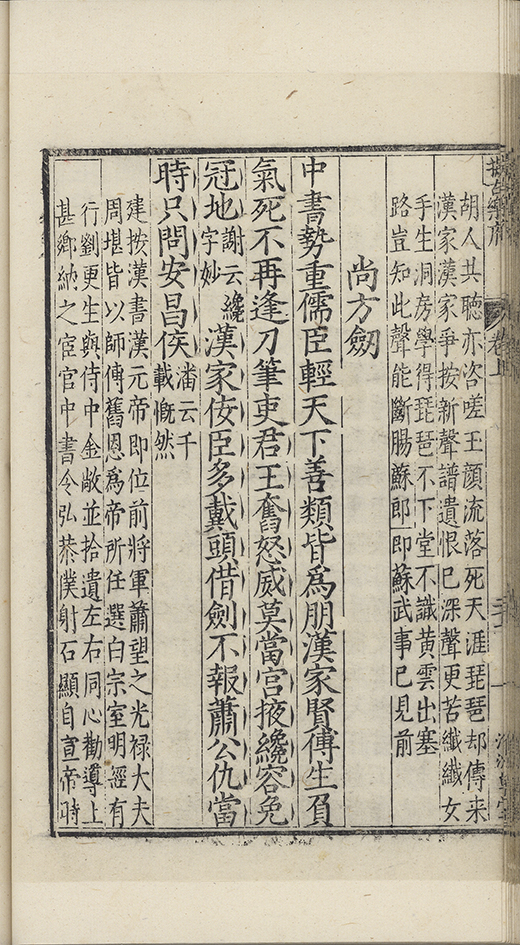 胡人共聽亦咨嗟玉顏流落死天涯琵琶却傳来
漢家漢家爭按新聲譜遺恨已深聲更苦纖纖女
手生洞房學得琵琶不下堂不識黃雲出塞
路豈知此聲能斷腸蘇郎即蘇武事已見前
尚方劒
中書勢重儒臣輕天下善類皆為朋漢家賢傅生負
氣死不再逢刀筆吏君王奮怒威莫當宮掖纔容免
冠地謝云纔字妙漢家佞臣多戴頭借劍不報蕭公仇當
時只問安昌侯潘云千載慨然
建按漢書漢元帝即位前將軍蕭望之光禄大夫
周堪皆以師傅舊恩爲帝所任選白宗室明經有
行劉更生與侍中金敞並拾遺左右同心勸導上
甚鄉納之宦官中書令弘恭僕射石顯自宣帝時
卷上